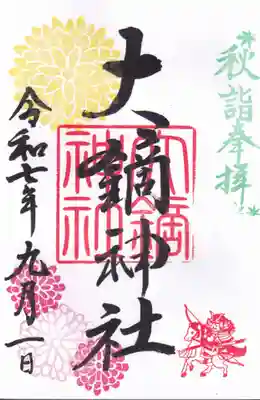 秋詣奉拝
大鏑神社
大鏑
神社
令和七年 九月一日